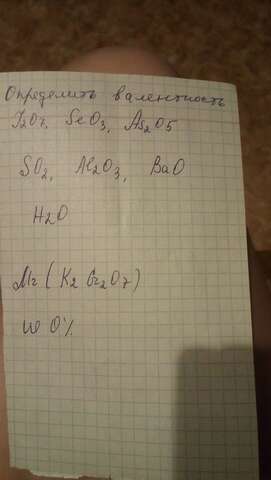 Определить валентность
I2O7, SeO3, As2O5
SO2, Al2O3, BaO
H2O
Mr (K2Cr2O7)
ω O%